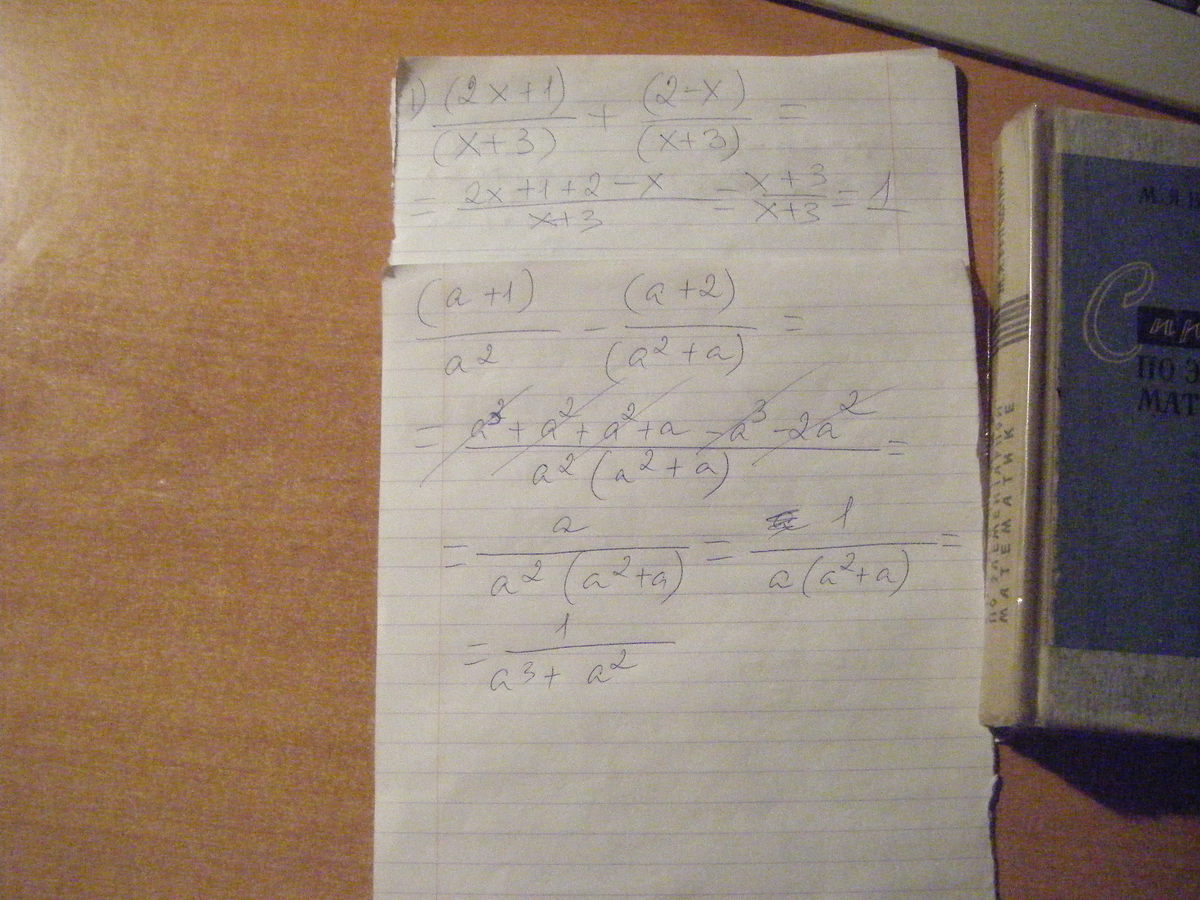 1) (2x+1)/(x+3) + (2-x)/(x+3) =
= (2x+1+2-x)/(x+3) = (x+3)/(x+3) = 1
(a+1)/a² - (a+2)/(a²+a) =
= (a³+a²+a²+a-a³-2a²)/(a²(a²+a)) =
= a/(a²(a²+a)) = 1/(a(a²+a)) =
= 1/(a³+a²)
ПО ЭЛЕМЕНТАРНОЙ
МАТЕМАТИКЕ
М. Я
ПО Э
МАТ